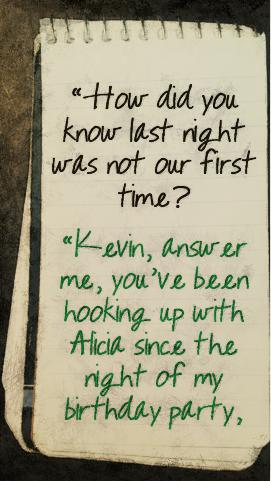 “How did you
know last night
was not our first
time?
“Kevin, answer
me, you've been
hooking up with
Alicia since the
night of my
birthday party,